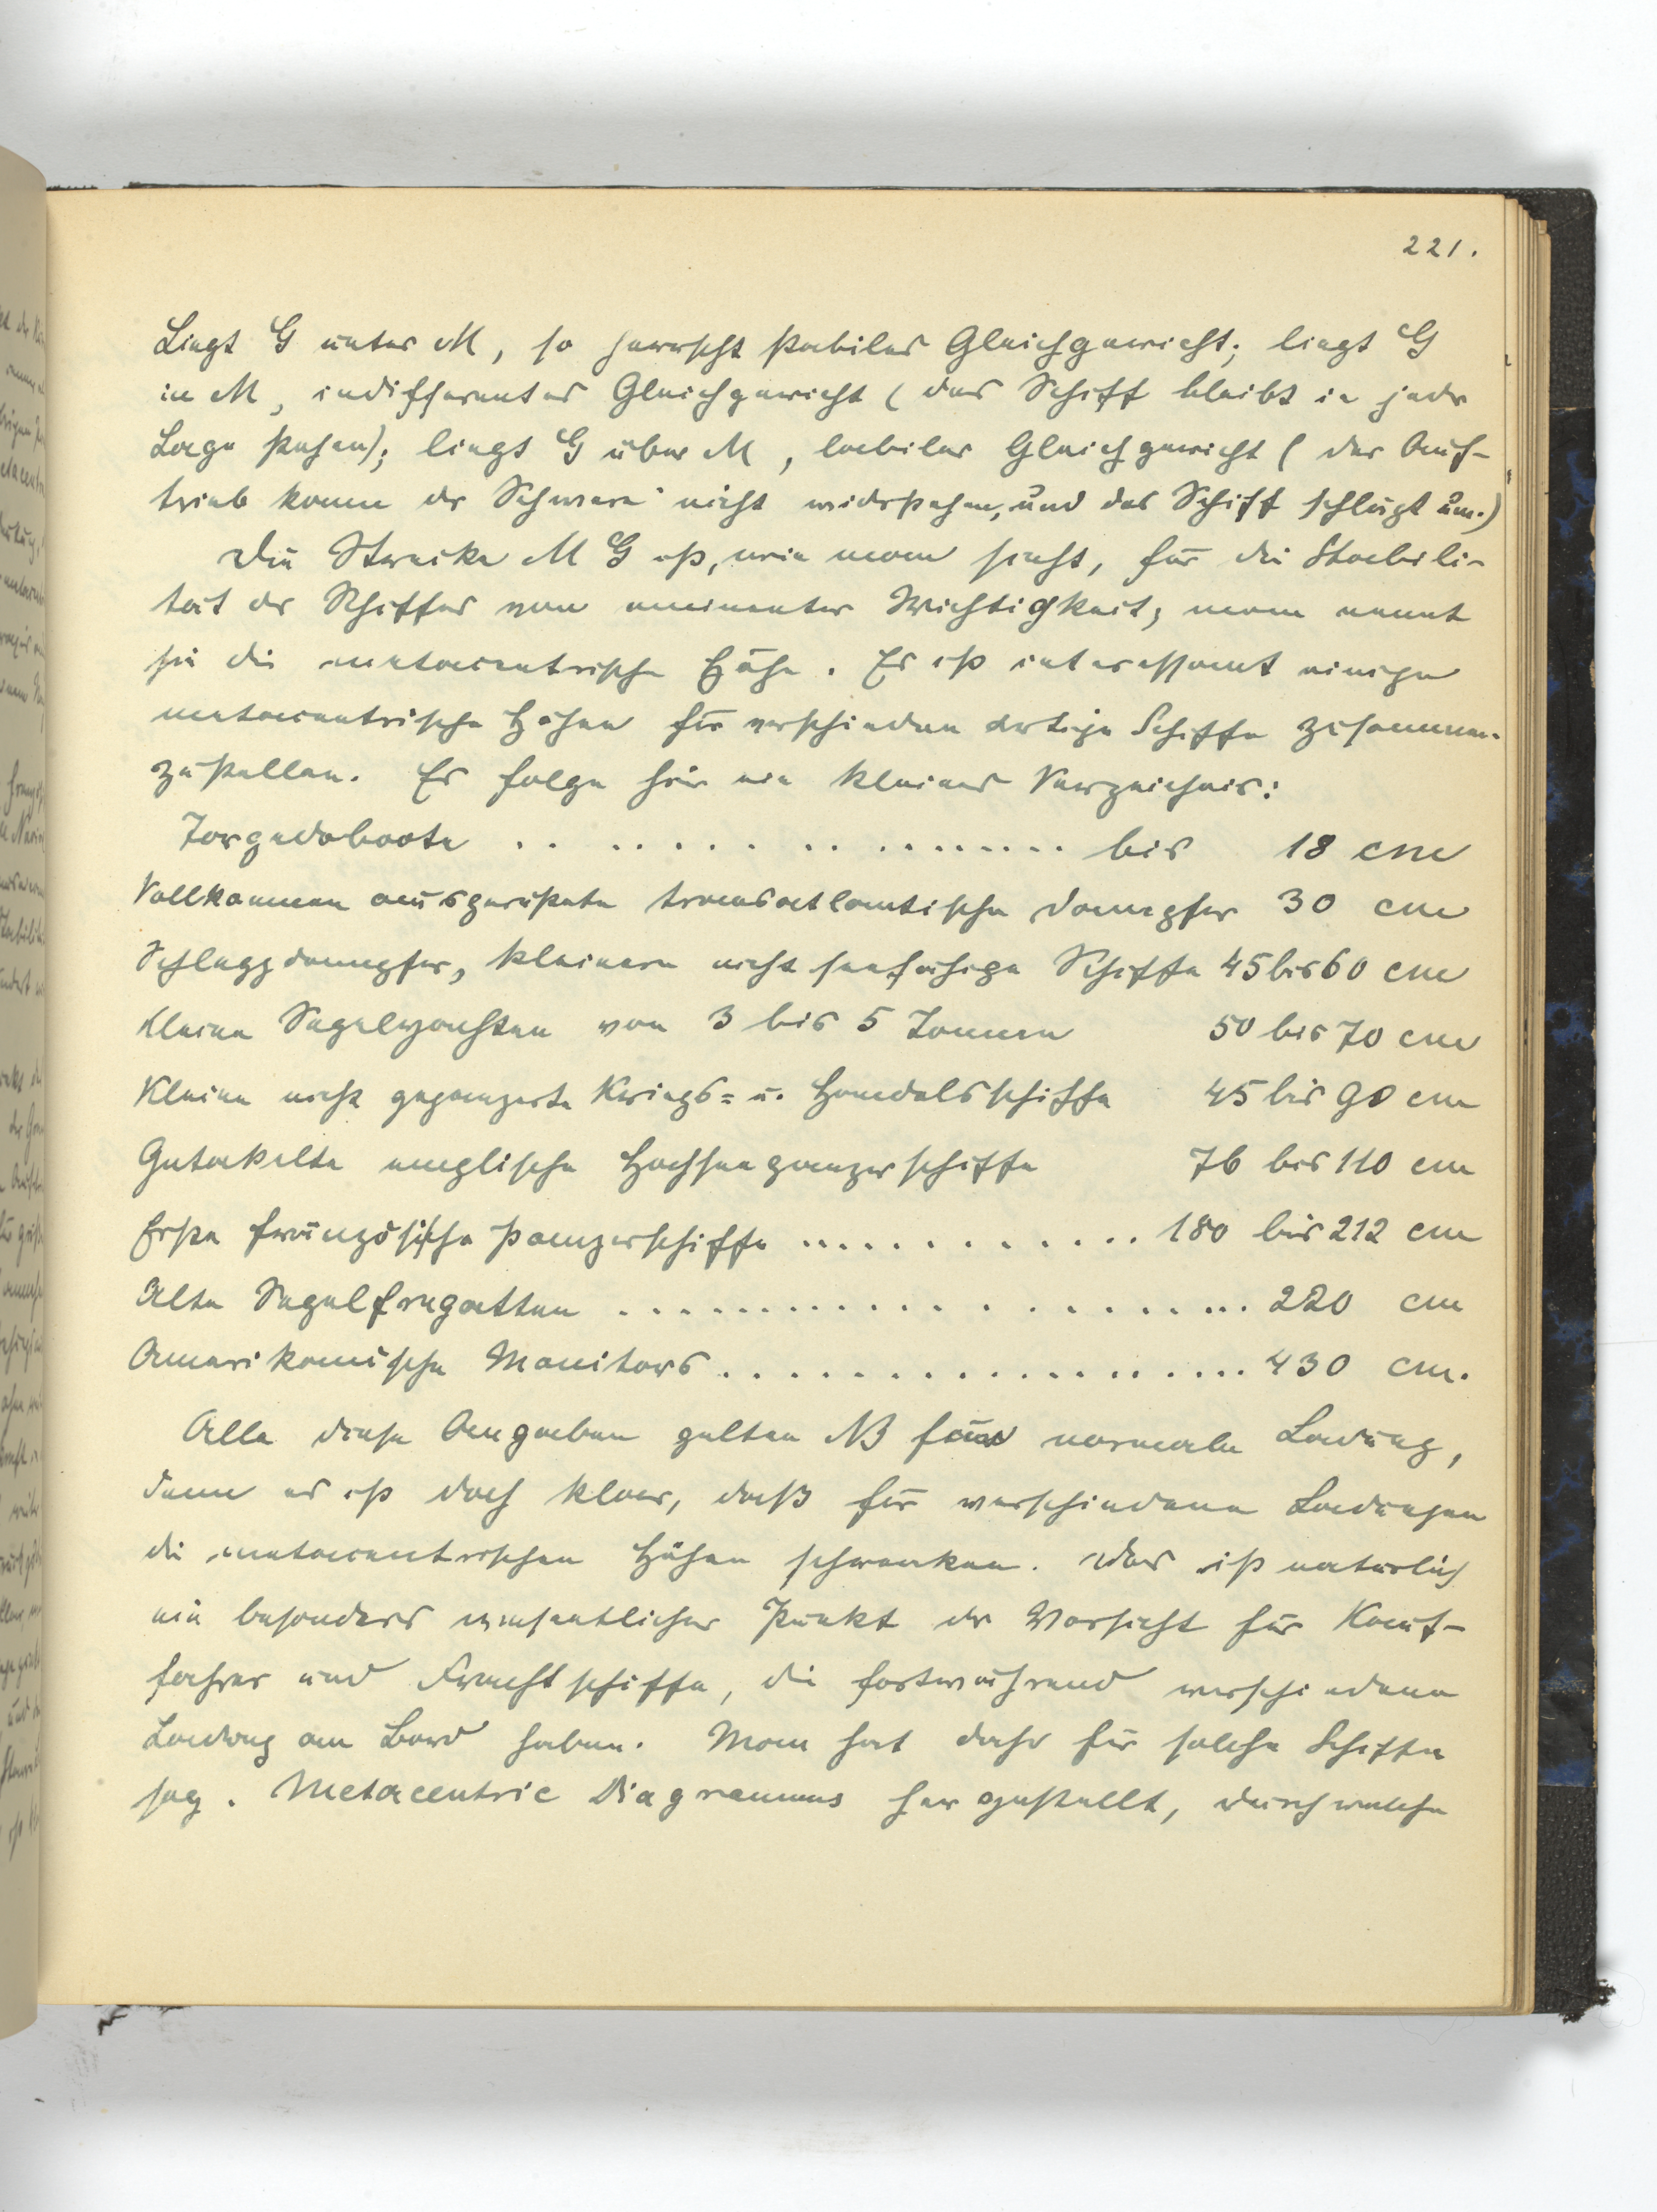 221.
Liegt G unter M, so herrscht stabiles Gleichgewicht; liegt G
in M, indifferentes Gleichgewicht (das Schiff bleibt in jeder
Lage stehen); liegt G über M, labiles Gleichgewicht (der Auf-
trieb kann der Schwere nicht widerstehen, und das Schiff schlägt um.)
Die Strecke M G ist, wie man sieht, für die Stabili-
tät des Schiffes von eminenter Wichtigkeit; man nennt
sie die metacentrische Höhe. Es ist interessant einige
metacentrische Höhen für verschiedenartige Schiffe zusammen-
zustellen. Es folge hier ein kleines Verzeichnis:
Torpedoboote .................... bis 18 cm
Vollkommen ausgerüstete transatlantische Dampfer 30 cm
Schleppdampfer, kleinere nicht seefähige Schiffe 45 bis 60 cm
Kleine Segelyachten von 3 bis 5 Tonnen 50 bis 70 cm
Kleine nicht gepanzerte Kriegs= u. Handelsschiffe 45 bis 90 cm
Getakelte englische Hochseepanzerschiffe 76 bis 110 cm
Erste französische Panzerschiffe ............ 180 bis 212 cm
Alte Segelfregatten ..................... 220 cm
Amerikanische Monitors .................... 430 cm.
Alle diese Angaben gelten NB für normale Ladung,
denn es ist doch klar, daß für verschiedene Ladungen
die metacentrischen Höhen schwanken. Das ist natürlich
ein besonders wesentlicher Punkt der Vorsicht für Kauf-
fahrer und Frachtschiffe, die fortwährend verschiedene
Ladung an Bord haben. Man hat daher für solche Schiffe
sog. Metacentric Diagramms hergestellt, durch welche